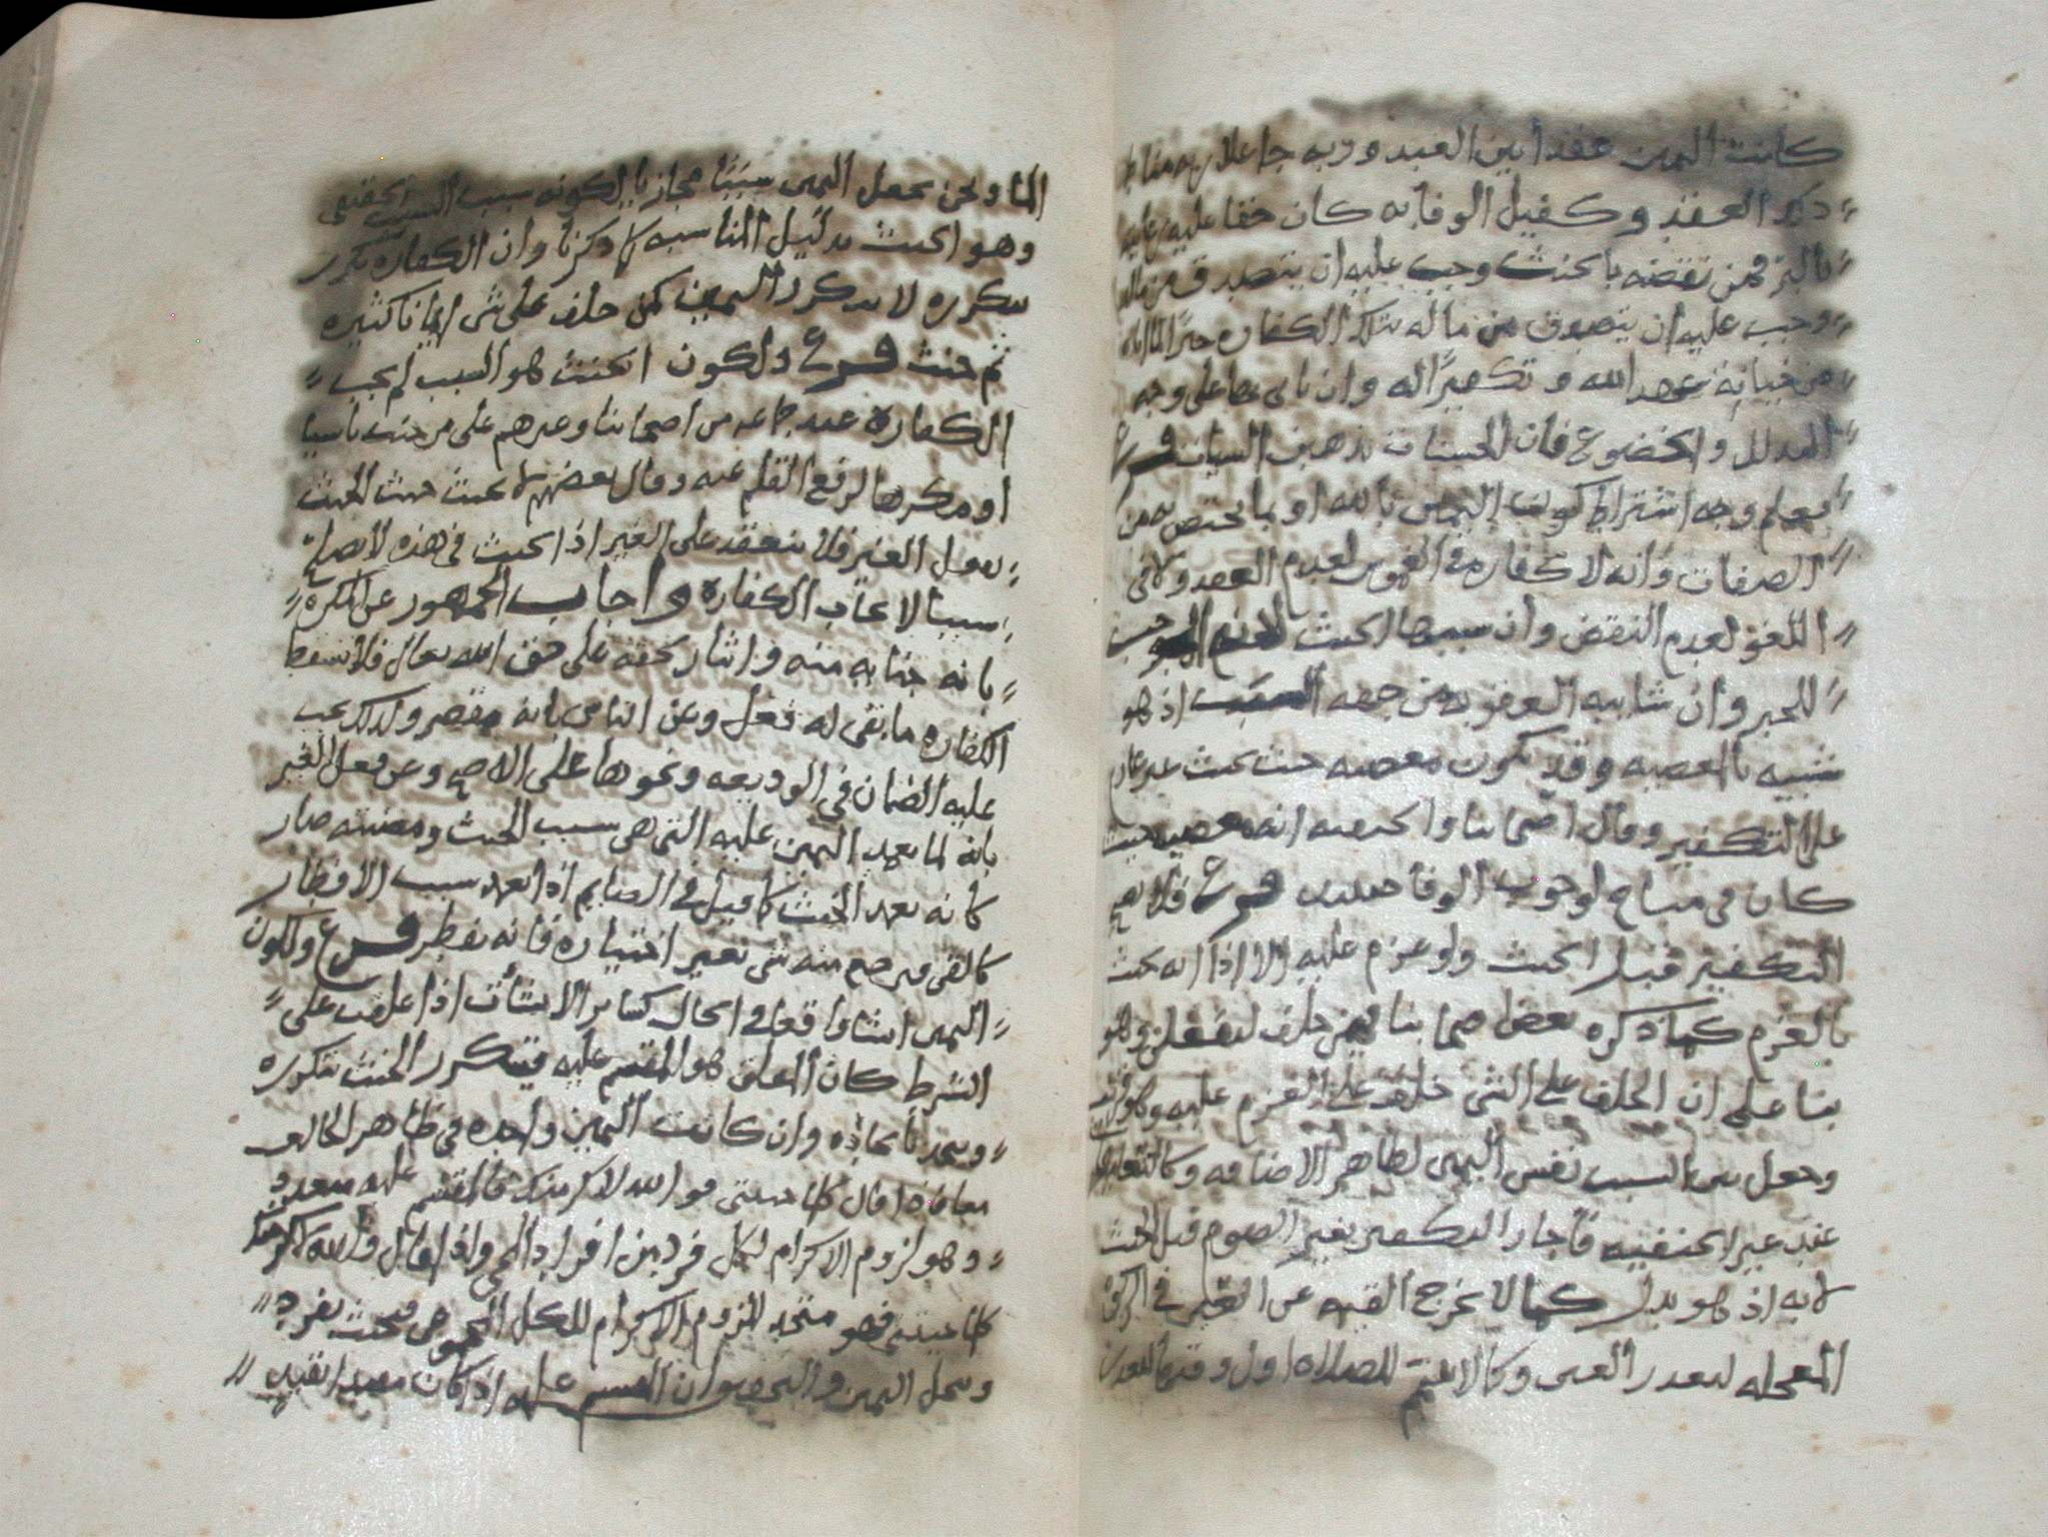 كانت اليمين عقدا بين العبد وربه جاعلا
ذكر العقد وكفيل الوفا به كان حقا عليه
بالبر فمن نقضه بالحنث وجب عليه ان يتصدق من ماله
وجب عليه ان يتصدق من ماله بتلك الكفاره جبرا
من خيانة عهد الله وتكفيرا له وان ياتي بها على وجه
التذلل والخضوع فان الحسنات يذهبن السيات فرع
فيعلم وجه اشتراط كون اليمين بالله او بما يختص به من
الصفات وانه لا كفاره في الغموس لعدم العقد ولا في
اللغو لعدم النقض وان سببها الحنث
للجبر وان شابه العقوبه من جهه السبب اذ هو
شبيه بالمعصيه وقد يكون معصيه حيث يحنث غير عازم
على التكفير وقال اصحابنا والحنفيه انه معصيه حيث
كان في مباح لوجوب الوفا فرع فلا يصح
التكفير قبل الحنث ولو عزم عليه الا اذا انه يحنث
بالعزم كما ذكره بعض اصحابنا فيمن حلف ليفعلن وهو
بنا على ان الحلف على الشي حلف على العزم عليه
وجعل السبب نفس اليمين لظاهر الاضافه
عند غير الحنفيه فاجاز التكفير بغير الصوم قبل الحنث
لانه اذ هو بدل كما لا يخرج القيمه عن العين في الزكاة
المعجله لتعذر العين وكالا يتيمم للصلاه اول وقتها
الما ونحن نجعل اليمين سببا مجازيا لكونه سبب السبب الحقيقي
وهو الحنث بدليل المناسبه كما ذكرنا وان الكفاره تتكرر
بتكرره لا بتكرر اليمين كمن حلف على شي ايمانا كثيره
ثم حنث فرع ولكون الحنث هو السبب لم يجب
الكفاره عند جماعه من اصحابنا وغيرهم على من حنث ناسيا
او مكرها لرفع القلم عنه وقال بعضهم لا يحنث حيث الحنث
بفعل الغير فلا ينعقد على الغير اذ الحنث في هذه لا يصلح
سببا لايجاب الكفاره واجاب الجمهور عن المكره
بانه جنايه منه وايثار لحقه على حق الله تعالى فلا تسقط
الكفاره ما بقي له فعل وعن الناسي بانه مقصر ولذلك يجب
عليه الضمان في الوديعه ونحوها على الاصح وعن فعل الغير
بانه لما تعمد اليمين عليه التي هي سبب الحنث ومضنته صار
كانه تعمد الحنث كما قيل في الصايم اذا تعمد سبب الافطار
كالقي فيرجع منه شي بغير اختياره فانه يفطر فرع ولكون
اليمين انشا واقعا في الحال كساير الانشأت اذا علقت على
الشرط كان المعلق هو المقسم عليه فيتكرر الحنث بتكرره
وان كانت اليمين واحده في ظاهر الحال
فاذا قال كلما جيتني فو الله لاكرمنك فالمقسم عليه متعدد
وهو لزوم الاكرام لكل فرد من افراد المجي واذا قال والله لاكرمنك
كلما جيتني فهو متحد لزوم الاكرام للكل المجموعي فيحنث بفرد
وينحل اليمين وان المقسم عليه اذا كان